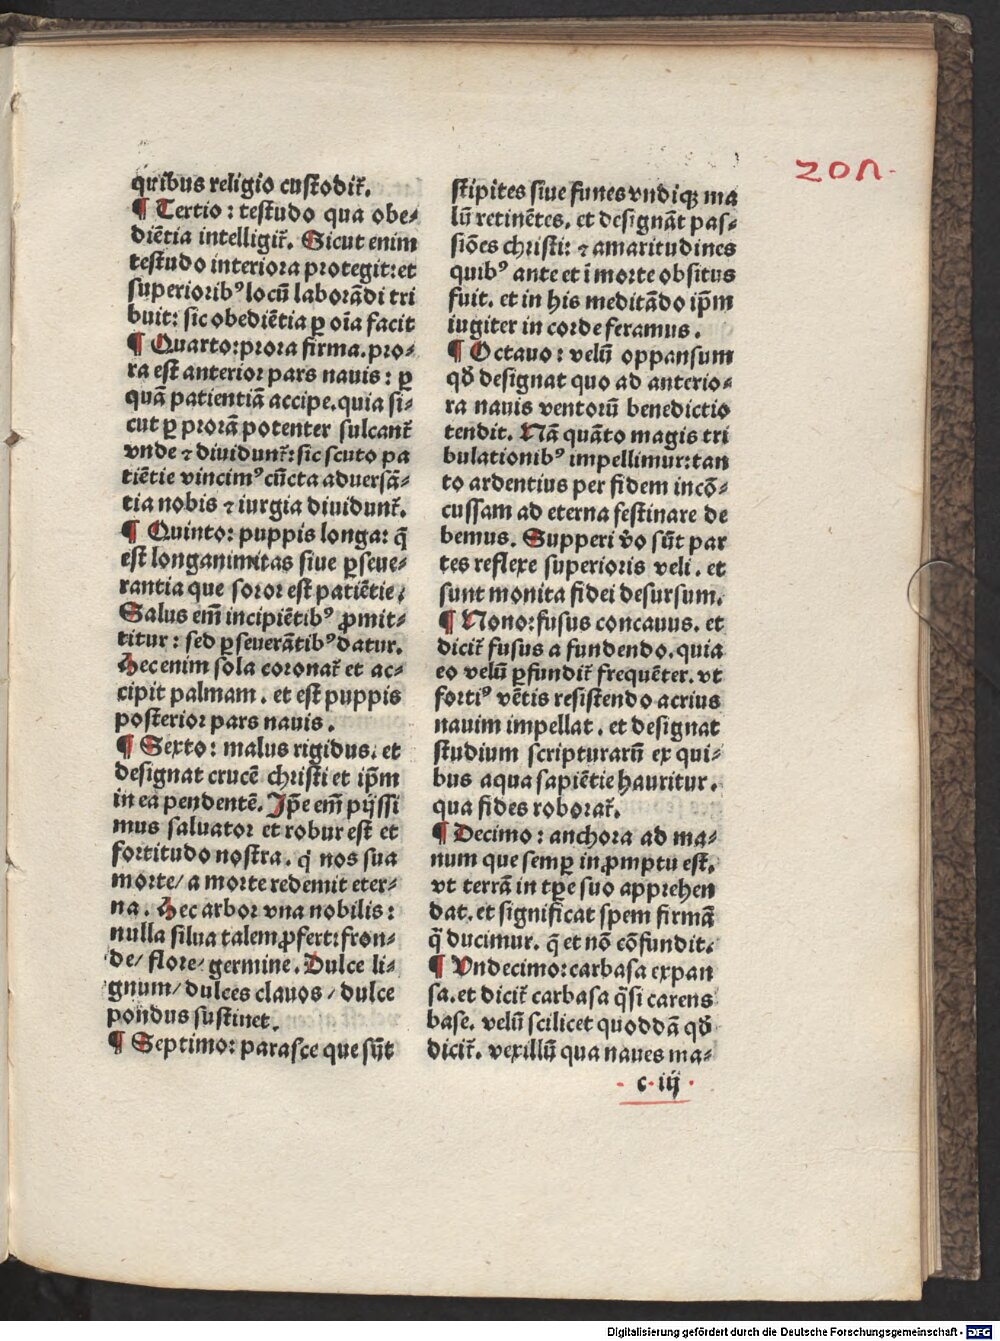 quibus religio custodit᷑.
¶ Tertio: testudo qua obe⸗
diẽtia intelligit᷑. Sicut enim
testudo interiora protegit: et
superiorib⁹ locũ laborãdi tri
buit: sic obediẽtia ꝑ oĩa facit
¶ Quarto: prora firma. pro⸗
ra est anterior pars nauis: ꝑ
quã patientiã accipe. quia si⸗
cut ꝑ prorã potenter sulcant᷑
vnde ⁊ diuidunt᷑: sic scuto pa
tiẽtie vincim⁹ cũcta aduersã⸗
tia nobis ⁊ iurgia diuidunt᷑.
¶ Quinto: puppis longa: q̃
est longanimitas siue ꝑseue⸗
rantia que soror est patiẽtie.
Salus em̃ incipiẽtib⁹ ꝓmit⸗
titur: sed ꝑseuerãtib⁹ datur.
Hec enim sola coronat᷑ et ac⸗
cipit palmam. et est puppis
posterior pars nauis.
¶ Sexto: malus rigidus. et
designat crucẽ christi et ip̃m
in ea pendentẽ. Ip̃e em̃ pijssi
mus saluator et robur est et
fortitudo nostra. q̇ nos sua
morte/ a morte redemit eter⸗
na. Hec arbor vna nobilis:
nulla silua talem ꝓfert: fron⸗
de/ flore/ germine. Dulce li⸗
gnum/ dulces clauos/ dulce
pondus sustinet.
¶ Septimo: parasce que sũt
stipites siue funes vndiqꝫ ma
lũ retinẽtes. et designãt pas⸗
siões christi: ⁊ amaritudines
quib⁹ ante et ĩ morte obsitus
fuit. et in his meditãdo ip̃m
iugiter in corde feramus.
¶ Octauo: velũ oppansum
qđ designat quo ad anterio⸗
ra nauis ventorũ benedictio
tendit. Nã quãto magis tri
bulationib⁹ impellimur: tan
to ardentius per fidem incõ⸗
cussam ad eterna festinare de
bemus. Supperi v̾o sũt par
tes reflexe superioris veli. et
sunt monita fidei desursum.
¶ Nono: fusus concauus. et
dicit᷑ fusus a fundendo. quia
eo velũ ꝑfundit᷑ frequẽter. vt
forti⁹ vẽtis resistendo acrius
nauim impellat. et designat
studium scripturarũ ex qui⸗
bus aqua sapiẽtie hauritur.
qua fides roborat᷑.
¶ Decimo: anchora ad ma⸗
num que semꝑ in ꝓmptu est.
vt terrã in tp̃e suo apprehen
dat. et significat spem firmã
q̃ ducimur. q̃ et nõ cõfundit.
¶ Vndecimo: carbasa expan
sa. et dicit᷑ carbasa q̃si carens
base. velũ scilicet quoddã qđ
dicit᷑. vexillũ qua naues ma⸗
c iij
Digitalisierung gefördert durch die Deutsche Forschungsgemeinschaft - DFG